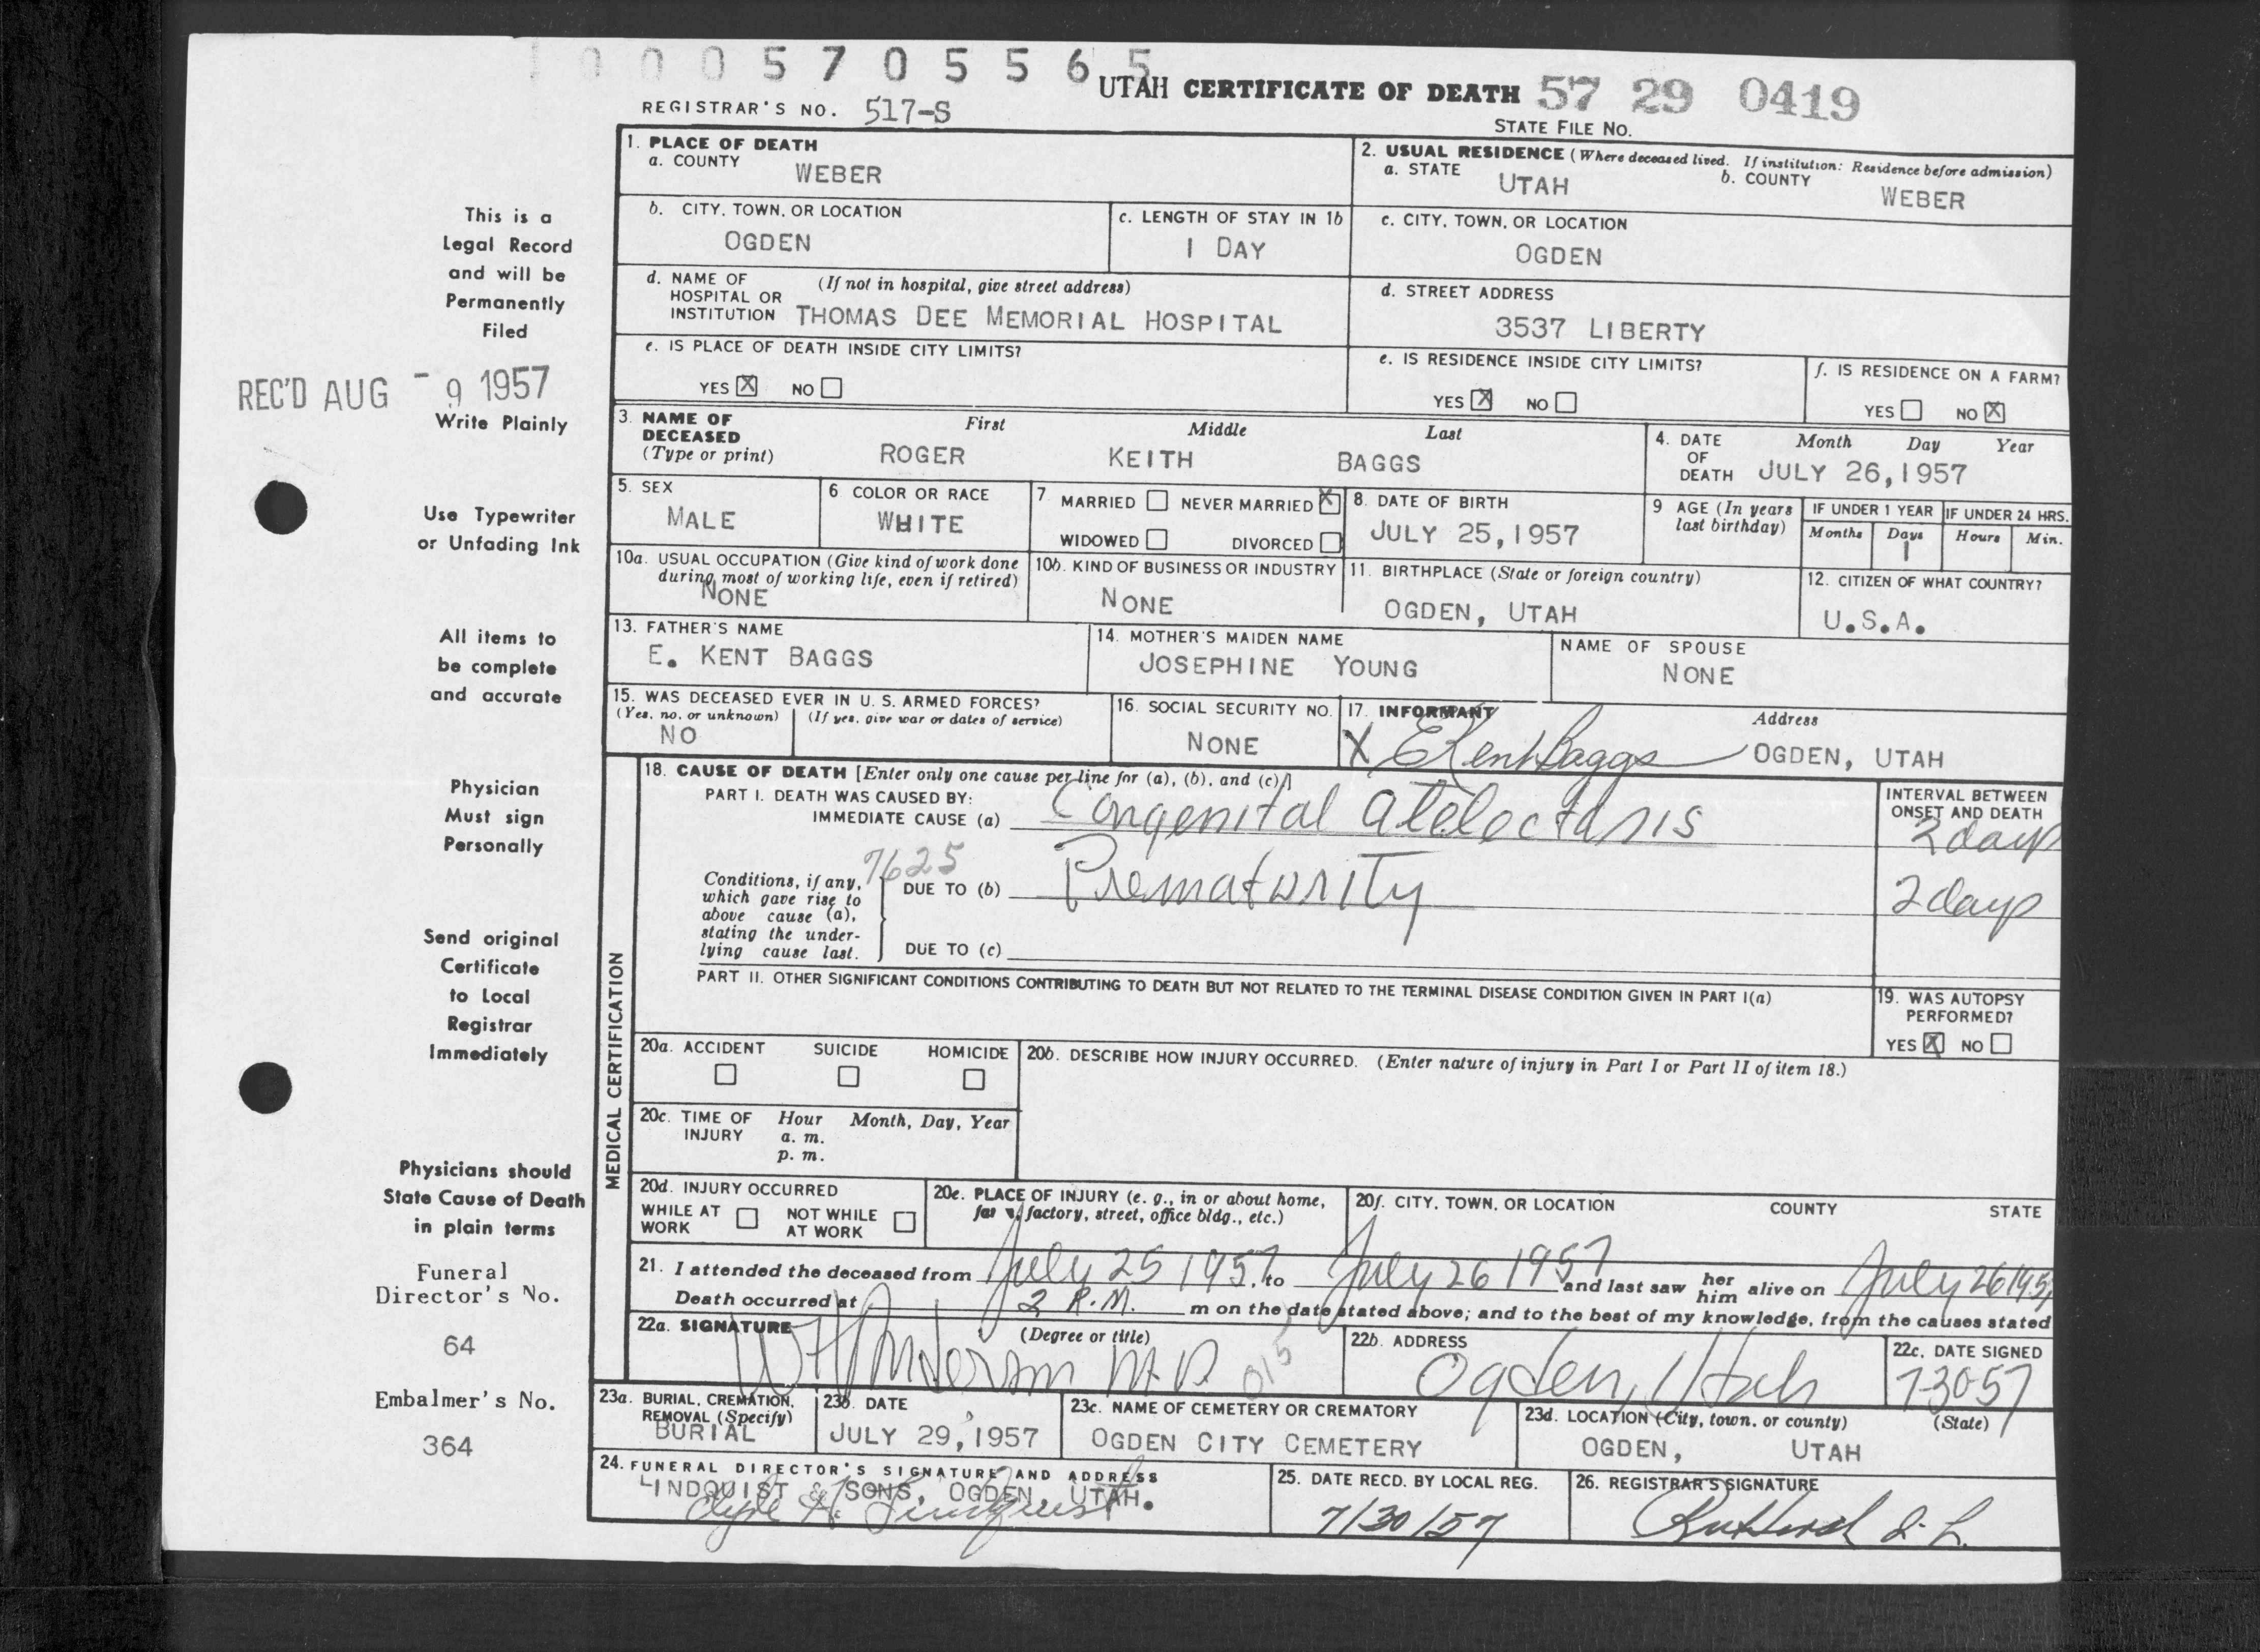 1 0 0 0 5 7 0 5 5 6 5
UTAH CERTIFICATE OF DEATH 57 29 0419
REGISTRAR'S NO. 517-S
STATE FILE NO.
This is a
Legal Record
and will be
Permanently
Filed
REC'D AUG - 9 1957
Write Plainly
Use Typewriter
or Unfading Ink
All items to
be complete
and accurate
Physician
Must sign
Personally
Send original
Certificate
to Local
Registrar
Immediately
Physicians should
State Cause of Death
in plain terms
Funeral
Director's No.
64
Embalmer's No.
364
1. PLACE OF DEATH
a. COUNTY WEBER
2. USUAL RESIDENCE (Where deceased lived. If institution: Residence before admission)
a. STATE UTAH b. COUNTY WEBER
b. CITY, TOWN, OR LOCATION OGDEN
c. LENGTH OF STAY IN 1b 1 DAY
c. CITY, TOWN, OR LOCATION OGDEN
d. NAME OF HOSPITAL OR INSTITUTION (If not in hospital, give street address) THOMAS DEE MEMORIAL HOSPITAL
d. STREET ADDRESS 3537 LIBERTY
e. IS PLACE OF DEATH INSIDE CITY LIMITS?
YES X NO
e. IS RESIDENCE INSIDE CITY LIMITS?
YES X NO
f. IS RESIDENCE ON A FARM?
YES NO X
3. NAME OF DECEASED (Type or print) First Middle Last
ROGER KEITH BAGGS
4. DATE OF DEATH Month Day Year
JULY 26, 1957
5. SEX MALE
6 COLOR OR RACE WHITE
7. MARRIED NEVER MARRIED X
WIDOWED DIVORCED
8. DATE OF BIRTH JULY 25, 1957
9 AGE (In years last birthday)
IF UNDER 1 YEAR IF UNDER 24 HRS.
Months Days Hours Min.
1
10a. USUAL OCCUPATION (Give kind of work done during most of working life, even if retired)
NONE
10b. KIND OF BUSINESS OR INDUSTRY
NONE
11. BIRTHPLACE (State or foreign country)
OGDEN, UTAH
12. CITIZEN OF WHAT COUNTRY?
U.S.A.
13. FATHER'S NAME
E. KENT BAGGS
14. MOTHER'S MAIDEN NAME
JOSEPHINE YOUNG
NAME OF SPOUSE
NONE
15. WAS DECEASED EVER IN U. S. ARMED FORCES?
(Yes, no, or unknown) (If yes, give war or dates of service)
NO
16. SOCIAL SECURITY NO.
NONE
17. INFORMANT Address
X E Kent Baggs OGDEN, UTAH
MEDICAL CERTIFICATION
18. CAUSE OF DEATH [Enter only one cause per line for (a), (b), and (c)]
PART I. DEATH WAS CAUSED BY:
IMMEDIATE CAUSE (a) Congenital Atelectasis
INTERVAL BETWEEN ONSET AND DEATH
2 days
7625
Conditions, if any, which gave rise to above cause (a), stating the underlying cause last.
DUE TO (b) Prematurity
2 days
DUE TO (c)
PART II. OTHER SIGNIFICANT CONDITIONS CONTRIBUTING TO DEATH BUT NOT RELATED TO THE TERMINAL DISEASE CONDITION GIVEN IN PART I(a)
19. WAS AUTOPSY PERFORMED?
YES X NO
20a. ACCIDENT SUICIDE HOMICIDE
20b. DESCRIBE HOW INJURY OCCURRED. (Enter nature of injury in Part I or Part II of item 18.)
20c. TIME OF INJURY Hour Month, Day, Year
a. m.
p. m.
20d. INJURY OCCURRED
WHILE AT WORK NOT WHILE AT WORK
20e. PLACE OF INJURY (e. g., in or about home, factory, street, office bldg., etc.)
20f. CITY, TOWN, OR LOCATION COUNTY STATE
21. I attended the deceased from July 25 1957, to July 26 1957 and last saw her him alive on July 26 1957
Death occurred at 2 P.M. m on the date stated above; and to the best of my knowledge, from the causes stated
22a. SIGNATURE (Degree or title)
M.D. 015
22b. ADDRESS
Ogden, Utah
22c. DATE SIGNED
7-30-57
23a. BURIAL, CREMATION, REMOVAL (Specify)
BURIAL
23b. DATE
JULY 29, 1957
23c. NAME OF CEMETERY OR CREMATORY
OGDEN CITY CEMETERY
23d. LOCATION (City, town, or county) (State)
OGDEN, UTAH
24. FUNERAL DIRECTOR'S SIGNATURE AND ADDRESS
LINDQUIST & SONS, OGDEN UTAH.
Clyde A. Lindquist
25. DATE RECD. BY LOCAL REG.
7/30/57
26. REGISTRAR'S SIGNATURE